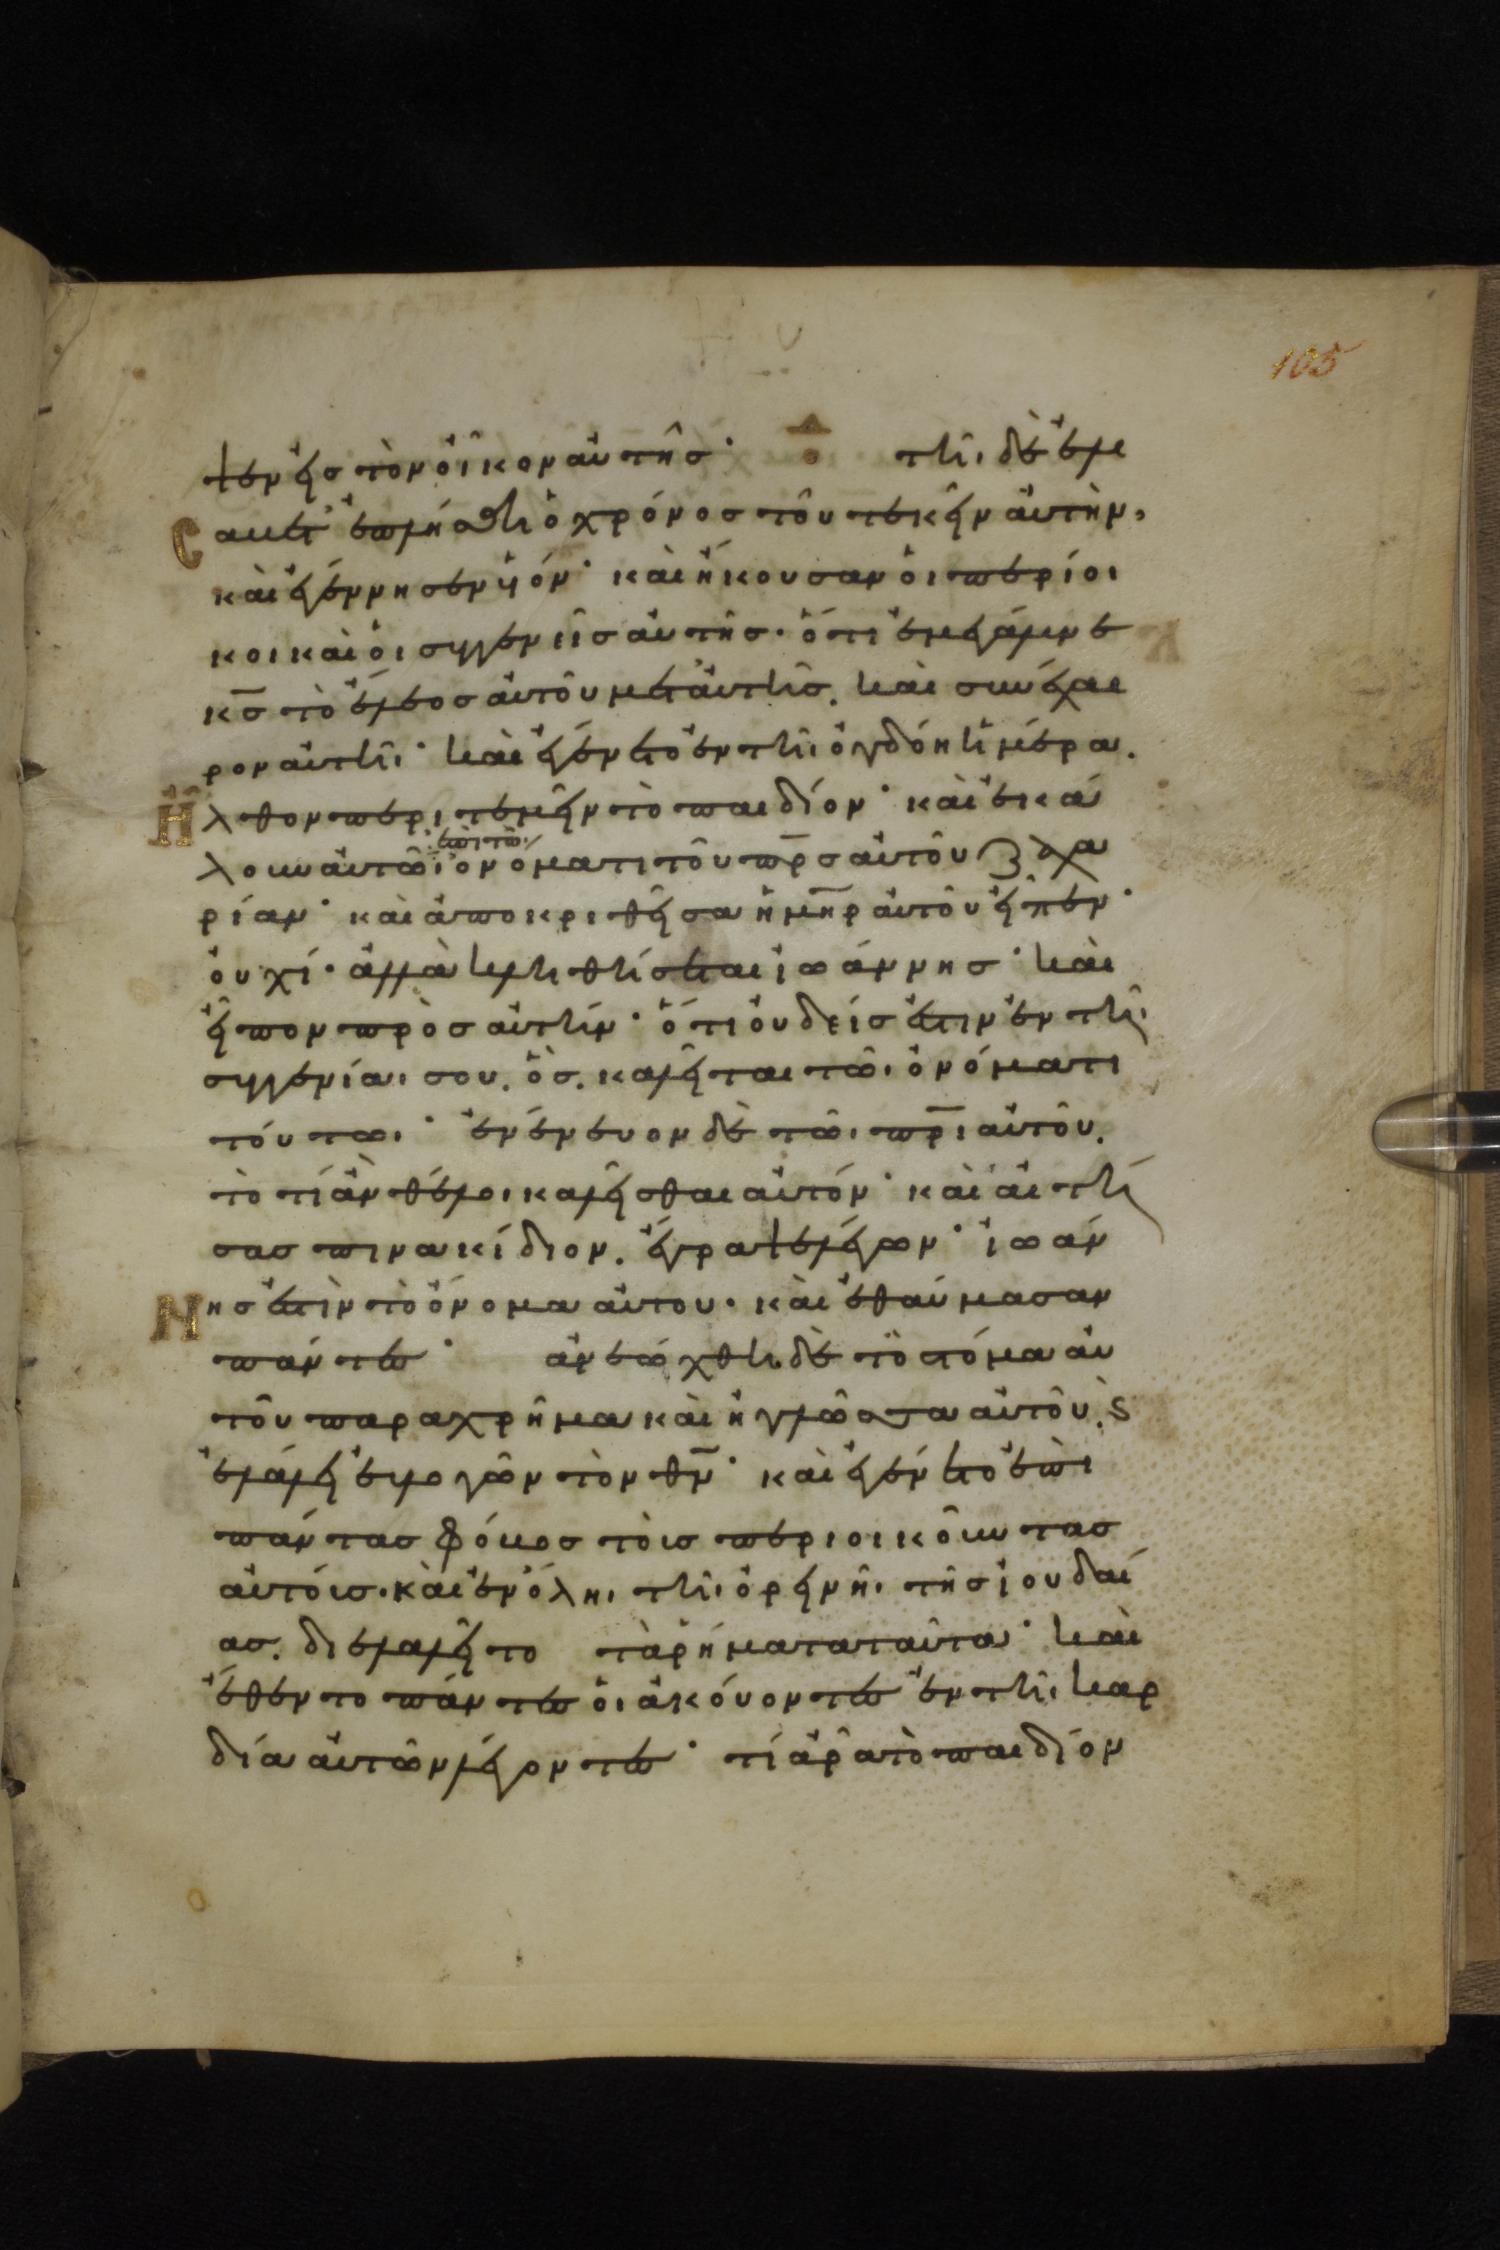 105
ψεν εἰς τὸν οἶκον αὐτῆς· τῆι δὲ ἐλι
σαβετ ἐπλήσθη ὁ χρόνος τοῦ τεκεῖν αὐτὴν,
καὶ ἐγέννησεν υἱόν· καὶ ἤκουσαν οἱ περίοι
κοι καὶ οἱ συγγενεῖς αὐτῆς· ὅτι ἐμεγάλυνε
κ̅ς̅ τὸ ἔλεος αὐτοῦ μετ' αὐτῆς. καὶ συνέχαι
ρον αὐτῆι· καὶ ἐγένετο ἐν τῆι ὀγδόη ἡμέρα.
ἦλθον περιτεμεῖν τὸ παιδίον· καὶ ἐκά
ἐπὶ τῶ
λουν αὐτῶι ὀνόματι τοῦ π̅ρ̅ς̅ αὐτοῦ ζαχα
ρίαν· καὶ ἀποκριθεῖσα ἡ μ̅η̅ρ̅ αὐτοῦ εἶπεν·
οὐχί· ἀλλὰ κληθήσεται ἰωάννης· καὶ
εἶπον πρὸς αὐτήν· ὅτι οὐδείς ἐστιν ἐν τῆι
συγγενίαι σου. ὃς. καλεῖται τῶι ὀνόματι
τούτωι· ἐνένευον δὲ τῶι π̅ρ̅ι̅ αὐτοῦ.
τὸ τί ἂν θέλοι καλεῖσθαι αὐτόν· καὶ αἰτή
σας πινακίδιον. ἔγραψε λέγων· ἰωάν
νης ἐστὶν τὸ ὄνομα αὐτου· καὶ ἐθαύμασαν
πάντες· ἀνεώχθη δὲ τὸ στόμα αὐ
τοῦ παραχρῆμα καὶ ἡ γλῶσσα αὐτοῦ, ϗ
ἐλάλει εὐλογῶν τὸν θ̅ν̅· καὶ ἐγένετο ἐπὶ
πάντας φόβος τοὶς περιοικοῦντας
αὐτόις· καὶ ἐν ὅλη τῆι ὀρεινῆι τῆς ἰουδαί
ας. διελαλεῖτο τὰ ῥήματα ταῦτα· καὶ
ἔθεντο πάντες οἱ ἀκούοντες ἐν τῆι καρ
δία αὐτῶν λέγοντες· τί ἄρα τὸ παιδίον